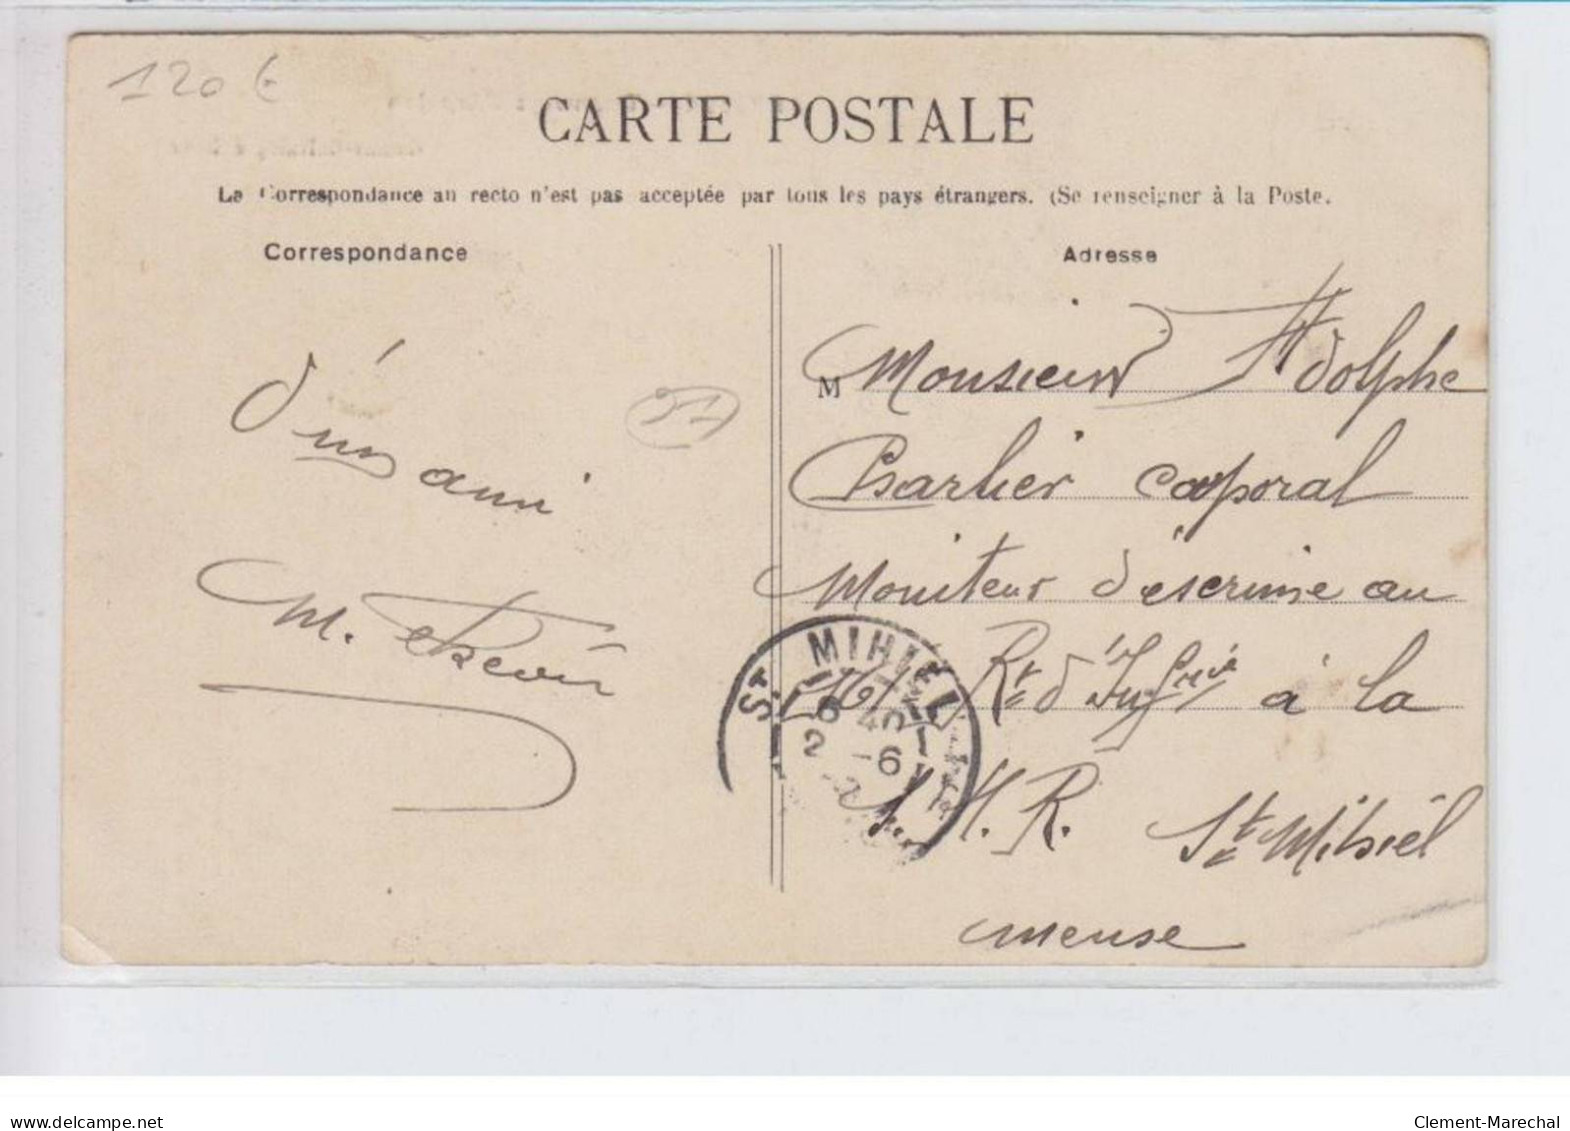 120 €
CARTE POSTALE
La Correspondance au recto n'est pas acceptée par tous les pays étrangers. (Se renseigner à la Poste.
Correspondance
Adresse
d'un ami
51
M.
M Monsieur Adolphe
caporal
Moniteur d'escrime au
161 Rt d'Infrie à la
H. R. St Mihiel
meuse
ST MIHIEL
6 40
2 -6
delcampe.net
Clement-Marechal